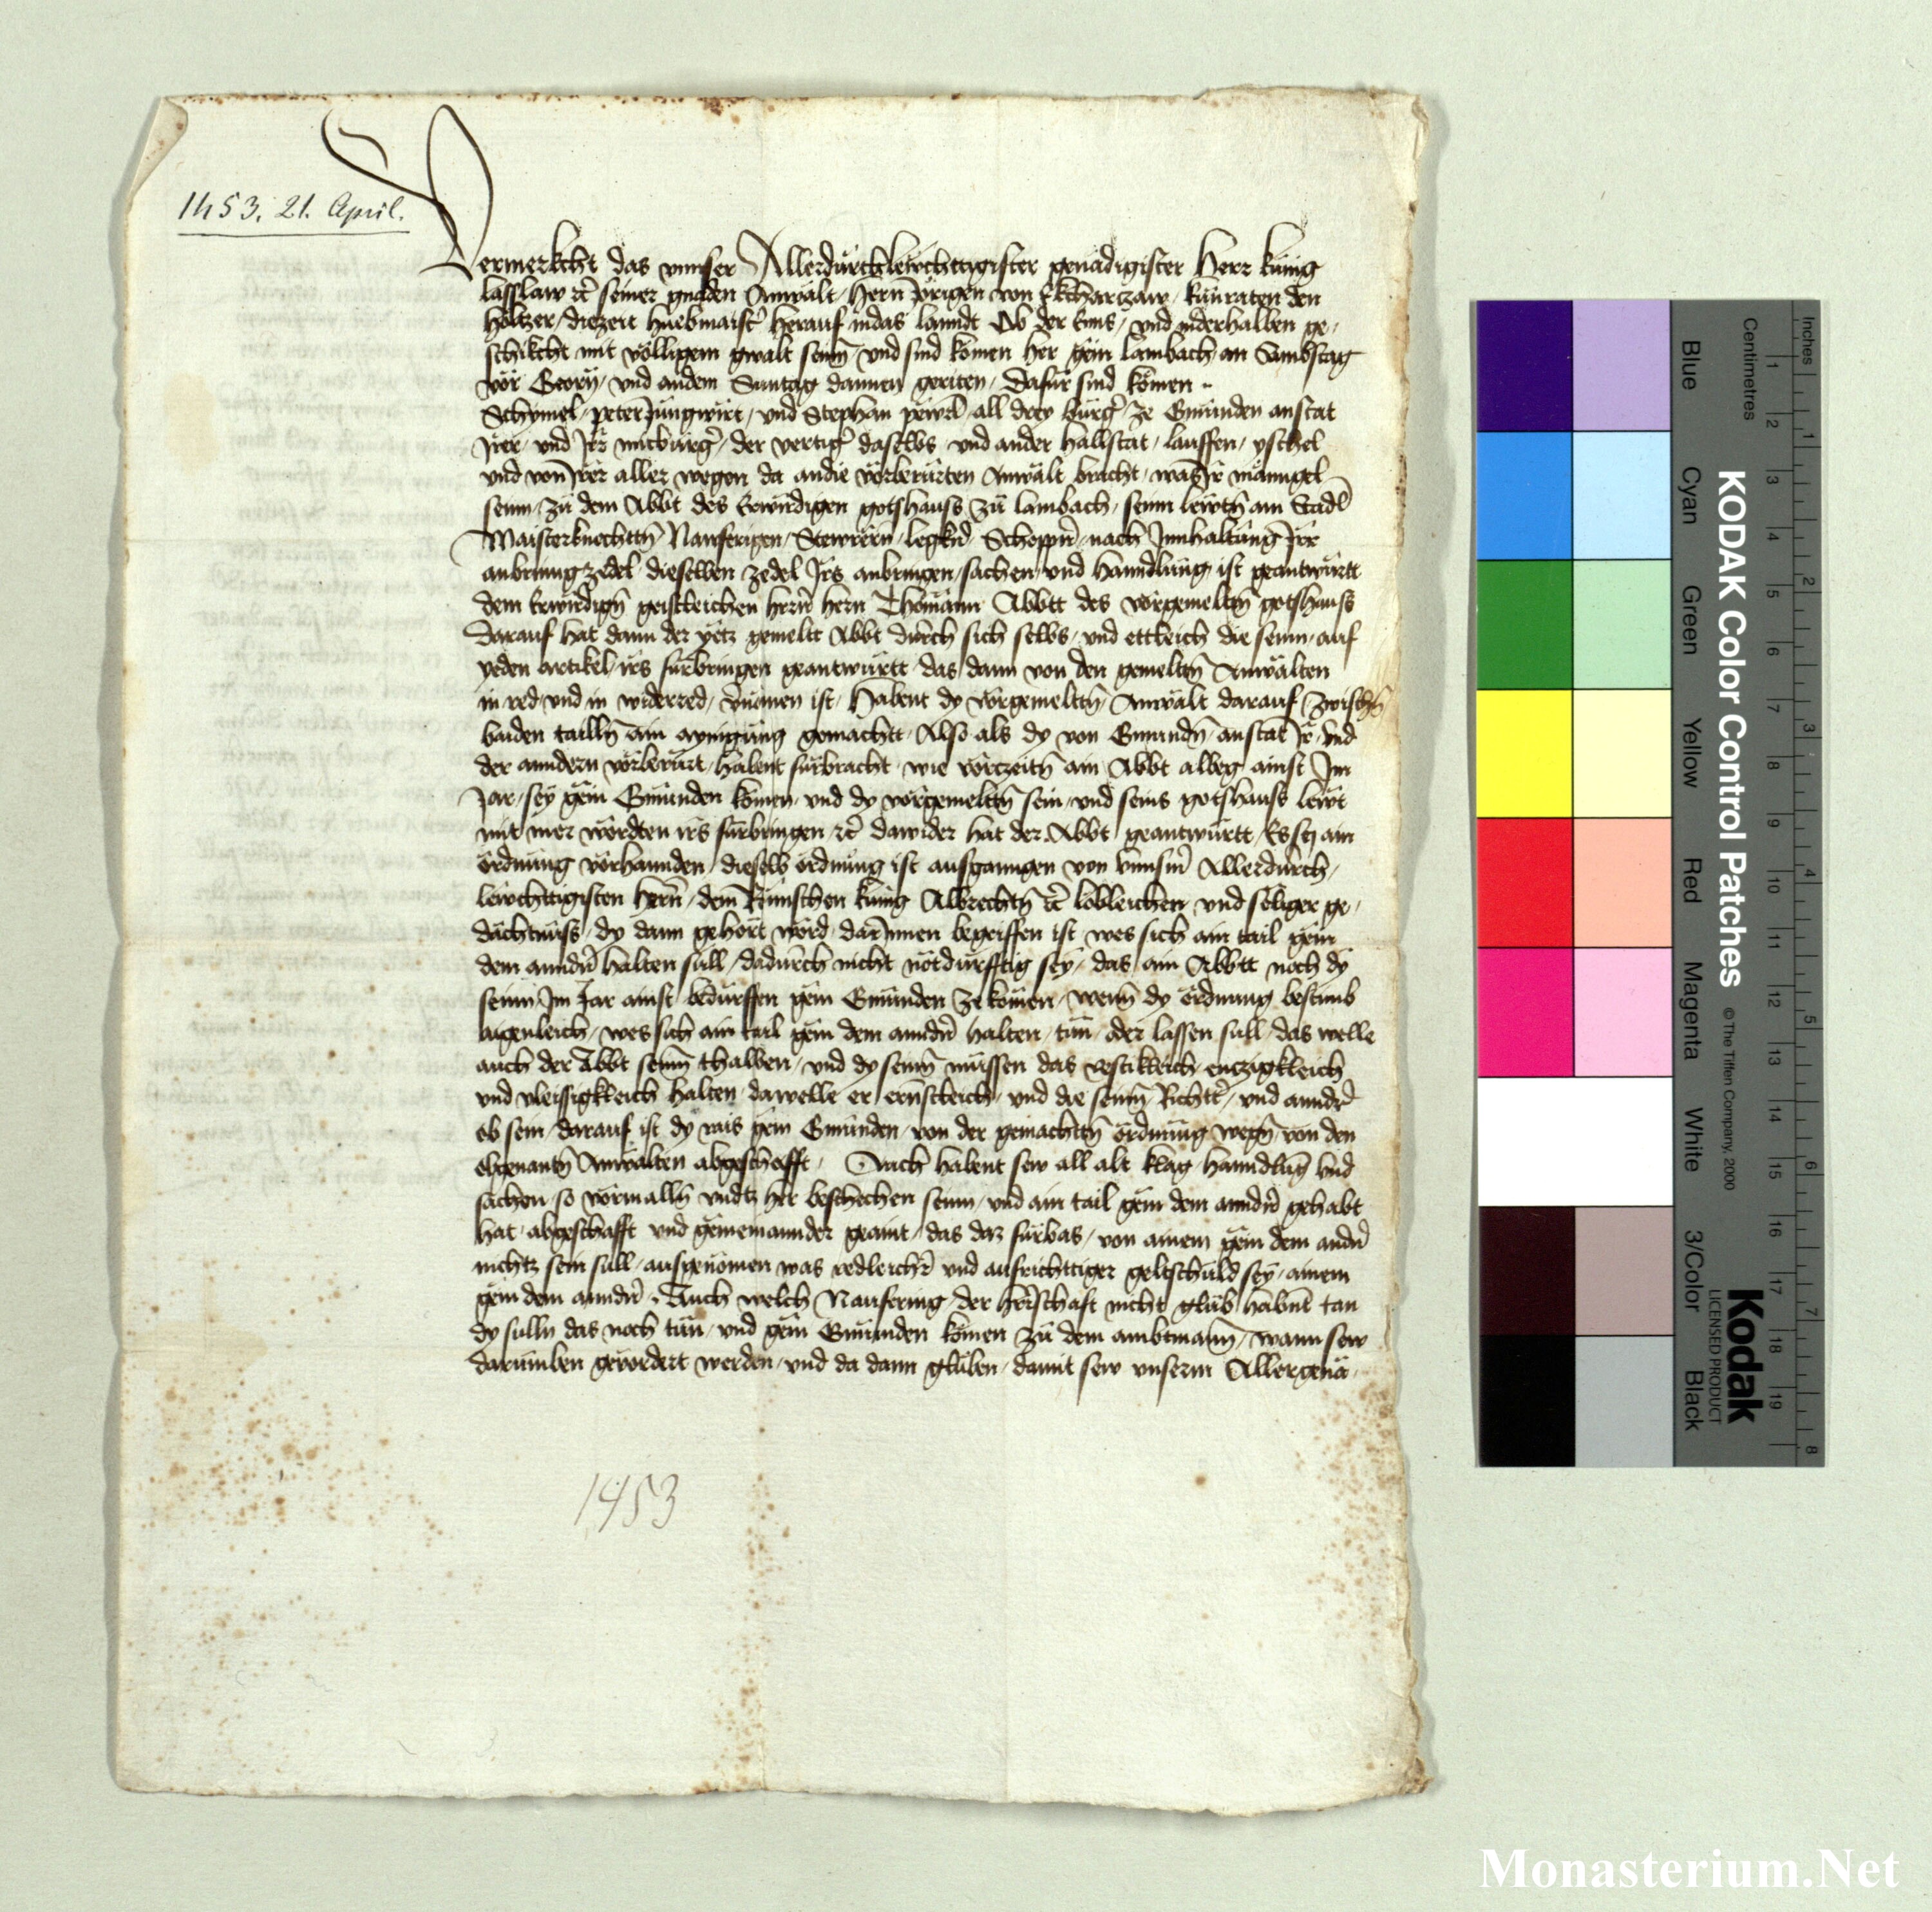 1453. 21. April.
Vermerkcht das vnnser Allerdurchlewchttigister genadigister Herr kunig
lasslaw etc seiner gnaden Anwält hern Jörigen von Ekcharczaw kunraten den
höltzer diezeit huebmaister herauf indas lanndt Ob der Enns vnd inderhalben ge
schikcht mit völligem gwalt senn vnd sind komen her gein lambach an Sambstag
vor Georÿ vnd andem Suntag dannen geriten dafür sind komen
Schymel peter Jungwirt vnd Stephan all drey burger ze Gmunden anstat
Irer vnd Irr mitburger der vertiger daselbs vnd ander hallstat lauffen yschel
vnd von Irer aller wegen da andie vörberürten Anwält bracht was Ir manngel
senn zu dem Abbt des Erwirdigen gotshauss zu lambach senn lewtn am Stadl
Maisterknechttn Nauferigen Stewrern nach Innhaltung Irr
anbrinng zedel dieselben zedel Irs anbringen sachen vnd hanndlung ist geantwurtt
dem Erwirdign geistleichen herrn hern Thoman Abbtt des vorgemelttn gotshauss
darauf hat dann der yetz gemeltt Abbt durch sich selbs vnd ettleich die senn auf
yeden artikel irs furbringen geantwurtt das dann von den gemelttn Anwälten
in red vnd in widerred vernomen ist habent dy vorgemelttn Anwält darauf zwischn
baiden tailln ain aynigung gemachtt Also als dy von Gmundn anstat Ir vnd
der anndern vörberurt habent furbracht wie vorczeitn ain Abbt albeg ainst Im
Jar sey gein Gmunden komen vnd dy vorgemelttn sein vnd seins gotshauss lewt
mit mer wordten irs furbringen etc dawider hat der Abbt geantwurtt Es sej ain
ordnung vorhannden dieselb ordnung ist ausganngen von vnnserm Allerdurch
lewchttigisten herrn dem Römschen kunig Albrechtn etc lobleichen vnd seliger ge
dächtnuss dy dann gehort word darInnen begriffen ist wes sich ain tail gein
dem anndern halten sull dadurch nicht notdurfftig sey das ain Abbtt noch dy
senn Im Jar ainst bedurffen gein Gmunden ze komen wenn dy ordnung bestimb
aigenleich wes sich ain tail gein dem anndern halten tun oder lassen sull das welle
auch der Abbt senn thalben vnd dy senn müssen das vestikleich enczigkleich
vnd vleissigkleich halten dawelle er ernstleich vnd die senn Richtter vnd annder
ob sein darauf ist dy rais gein Gmunden von der gemachttn ordnung wegn von den
obgenantn Anwälten abgeschafft Auch habent sew all alt klag hanndlung vnd
sachen so vormalln vnntz her beschechen senn vnd ain tail gein dem anndern gehabt
hat abgeschafft vnd geineinannder geaint das daz furbas von ainem gein dem andern
nichtz sein sull ausgenomen was redleicher vnd aufrichttiger geltschuld sey ainem
gein dem anndern Auch welch Naufering der herschaft nicht glub habnt tan
dy sulln das noch tun vnd gein Gmunden komen zu dem ambtmann wann sew
darumben gevordert werden vnd da dann gluben damit sew vnserm Allergena
1453
KODAK Color Control Patches
© The Tiffen Company, 2000
Kodak
LICENSED PRODUCT
Blue
Cyan
Green
Yellow
Red
Magenta
White
3/Color
Black
Inches
Centimetres
1 2 3 4 5 6 7 8 9 10 11 12 13 14 15 16 17 18 19
1 2 3 4 5 6 7 8
Monasterium.Net